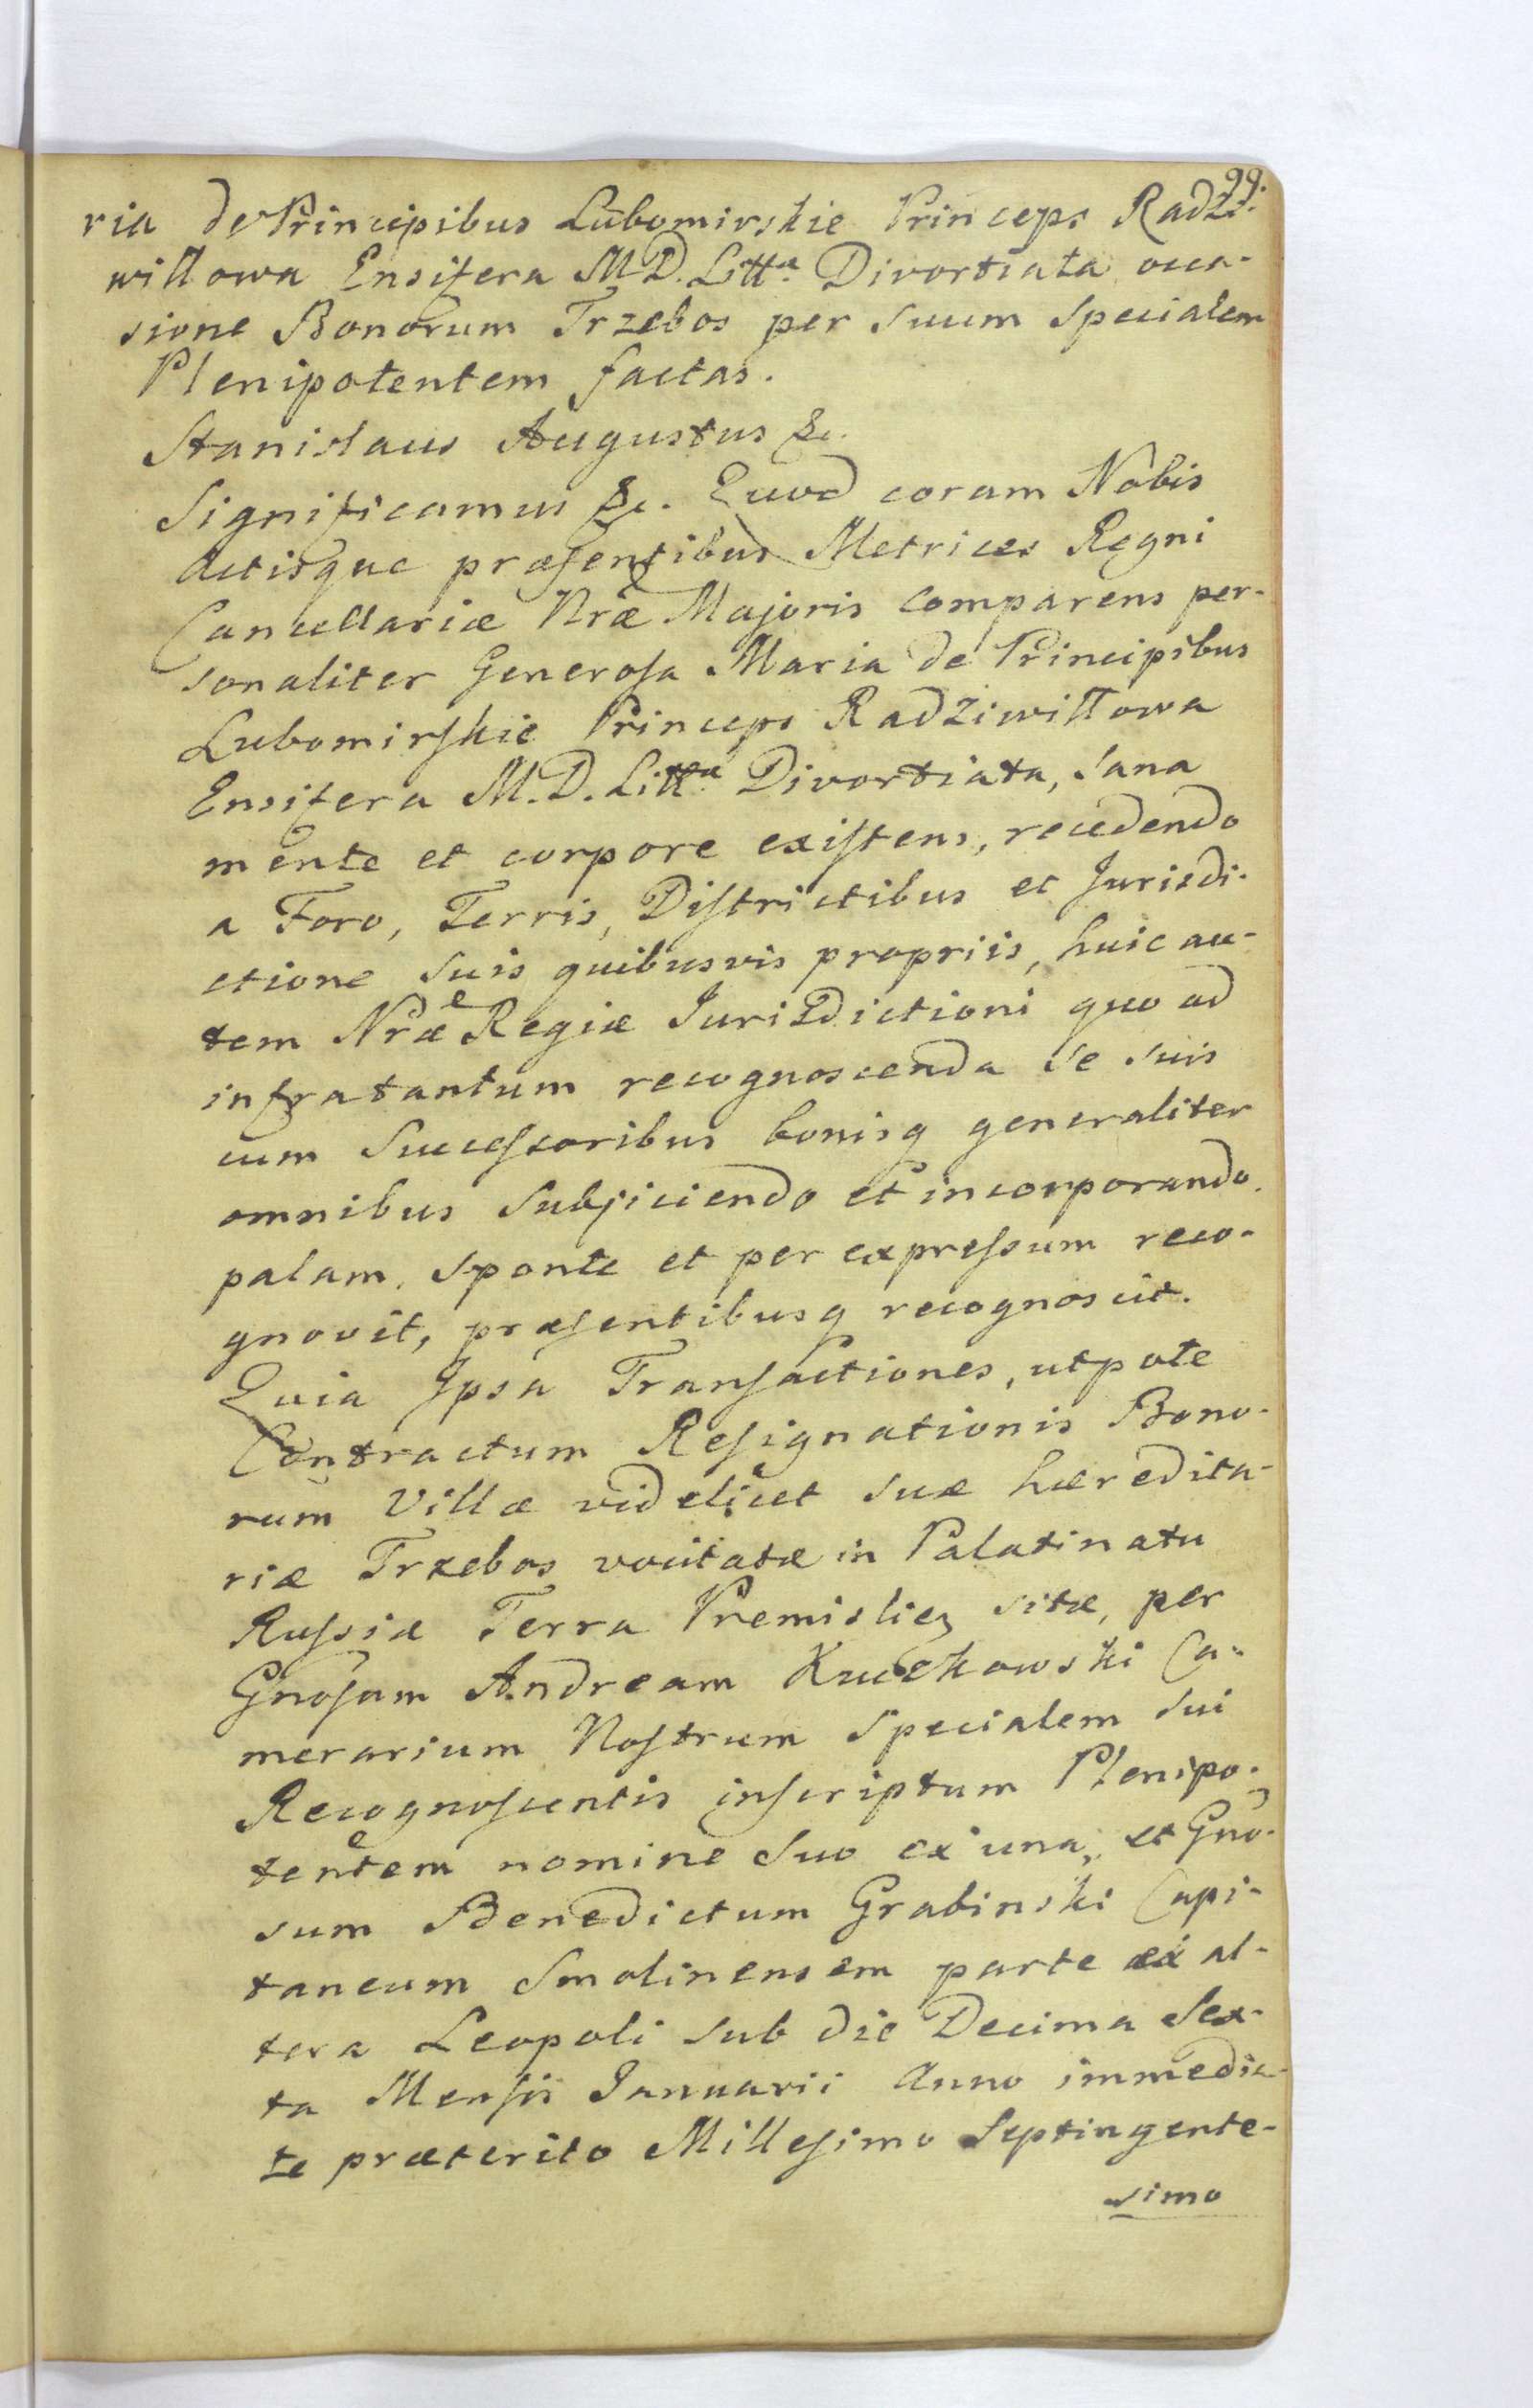 99.
ria de Principibus Lubomirskie Princeps Radzi-
wiłłowa Ensifera M.D. Litta. Divortiata occa-
sione Bonorum Trzebos per Suum Specialem
Plenipotentem factas.
Stanislaus Augustus &c.
Significamus &c. Quod coram Nobis
Actisque præsentibus Metrices Regni
Cancellariæ Nræ Majoris comparens per-
sonaliter Generosa Maria de Principibus
Lubomirskie Princeps Radziwiłłowa
Ensifera M.D. Litta. Divortiata, Sana
mente et corpore existens, recedendo
a Foro, Terris, Districtibus et Jurisdi-
ctione Suis quibusvis propriis, huic au-
tem Nræ Regiæ Jurisdictioni quo ad
infratantum recognoscenda Se Suis
cum Successoribus bonisq generaliter
omnibus Subjiciendo et incorporando,
palam, Sponte et per expressum reco-
gnovit, præsentibusq recognoscit.
Quia Ipsa Transactiones, utpote
Contractum Resignationis Bono-
rum Villæ videlicet Suæ hæredita-
riæ Trzebos vocitatæ in Palatinatu
Russiæ Terra Premislien sitæ, per
Gnosum Andream Ca-
merarium Nostrum Specialem Sui
Recognoscentis inscriptum Plenipo-
tentem nomine Suo ex una, et Gno-
sum Benedictum Grabinski Capi-
taneum Smolinensem parte ex al-
tera Leopoli Sub die Decima Sex-
ta Mensis Januarii Anno immedia-
te præterito Millesimo Septingente-
simo